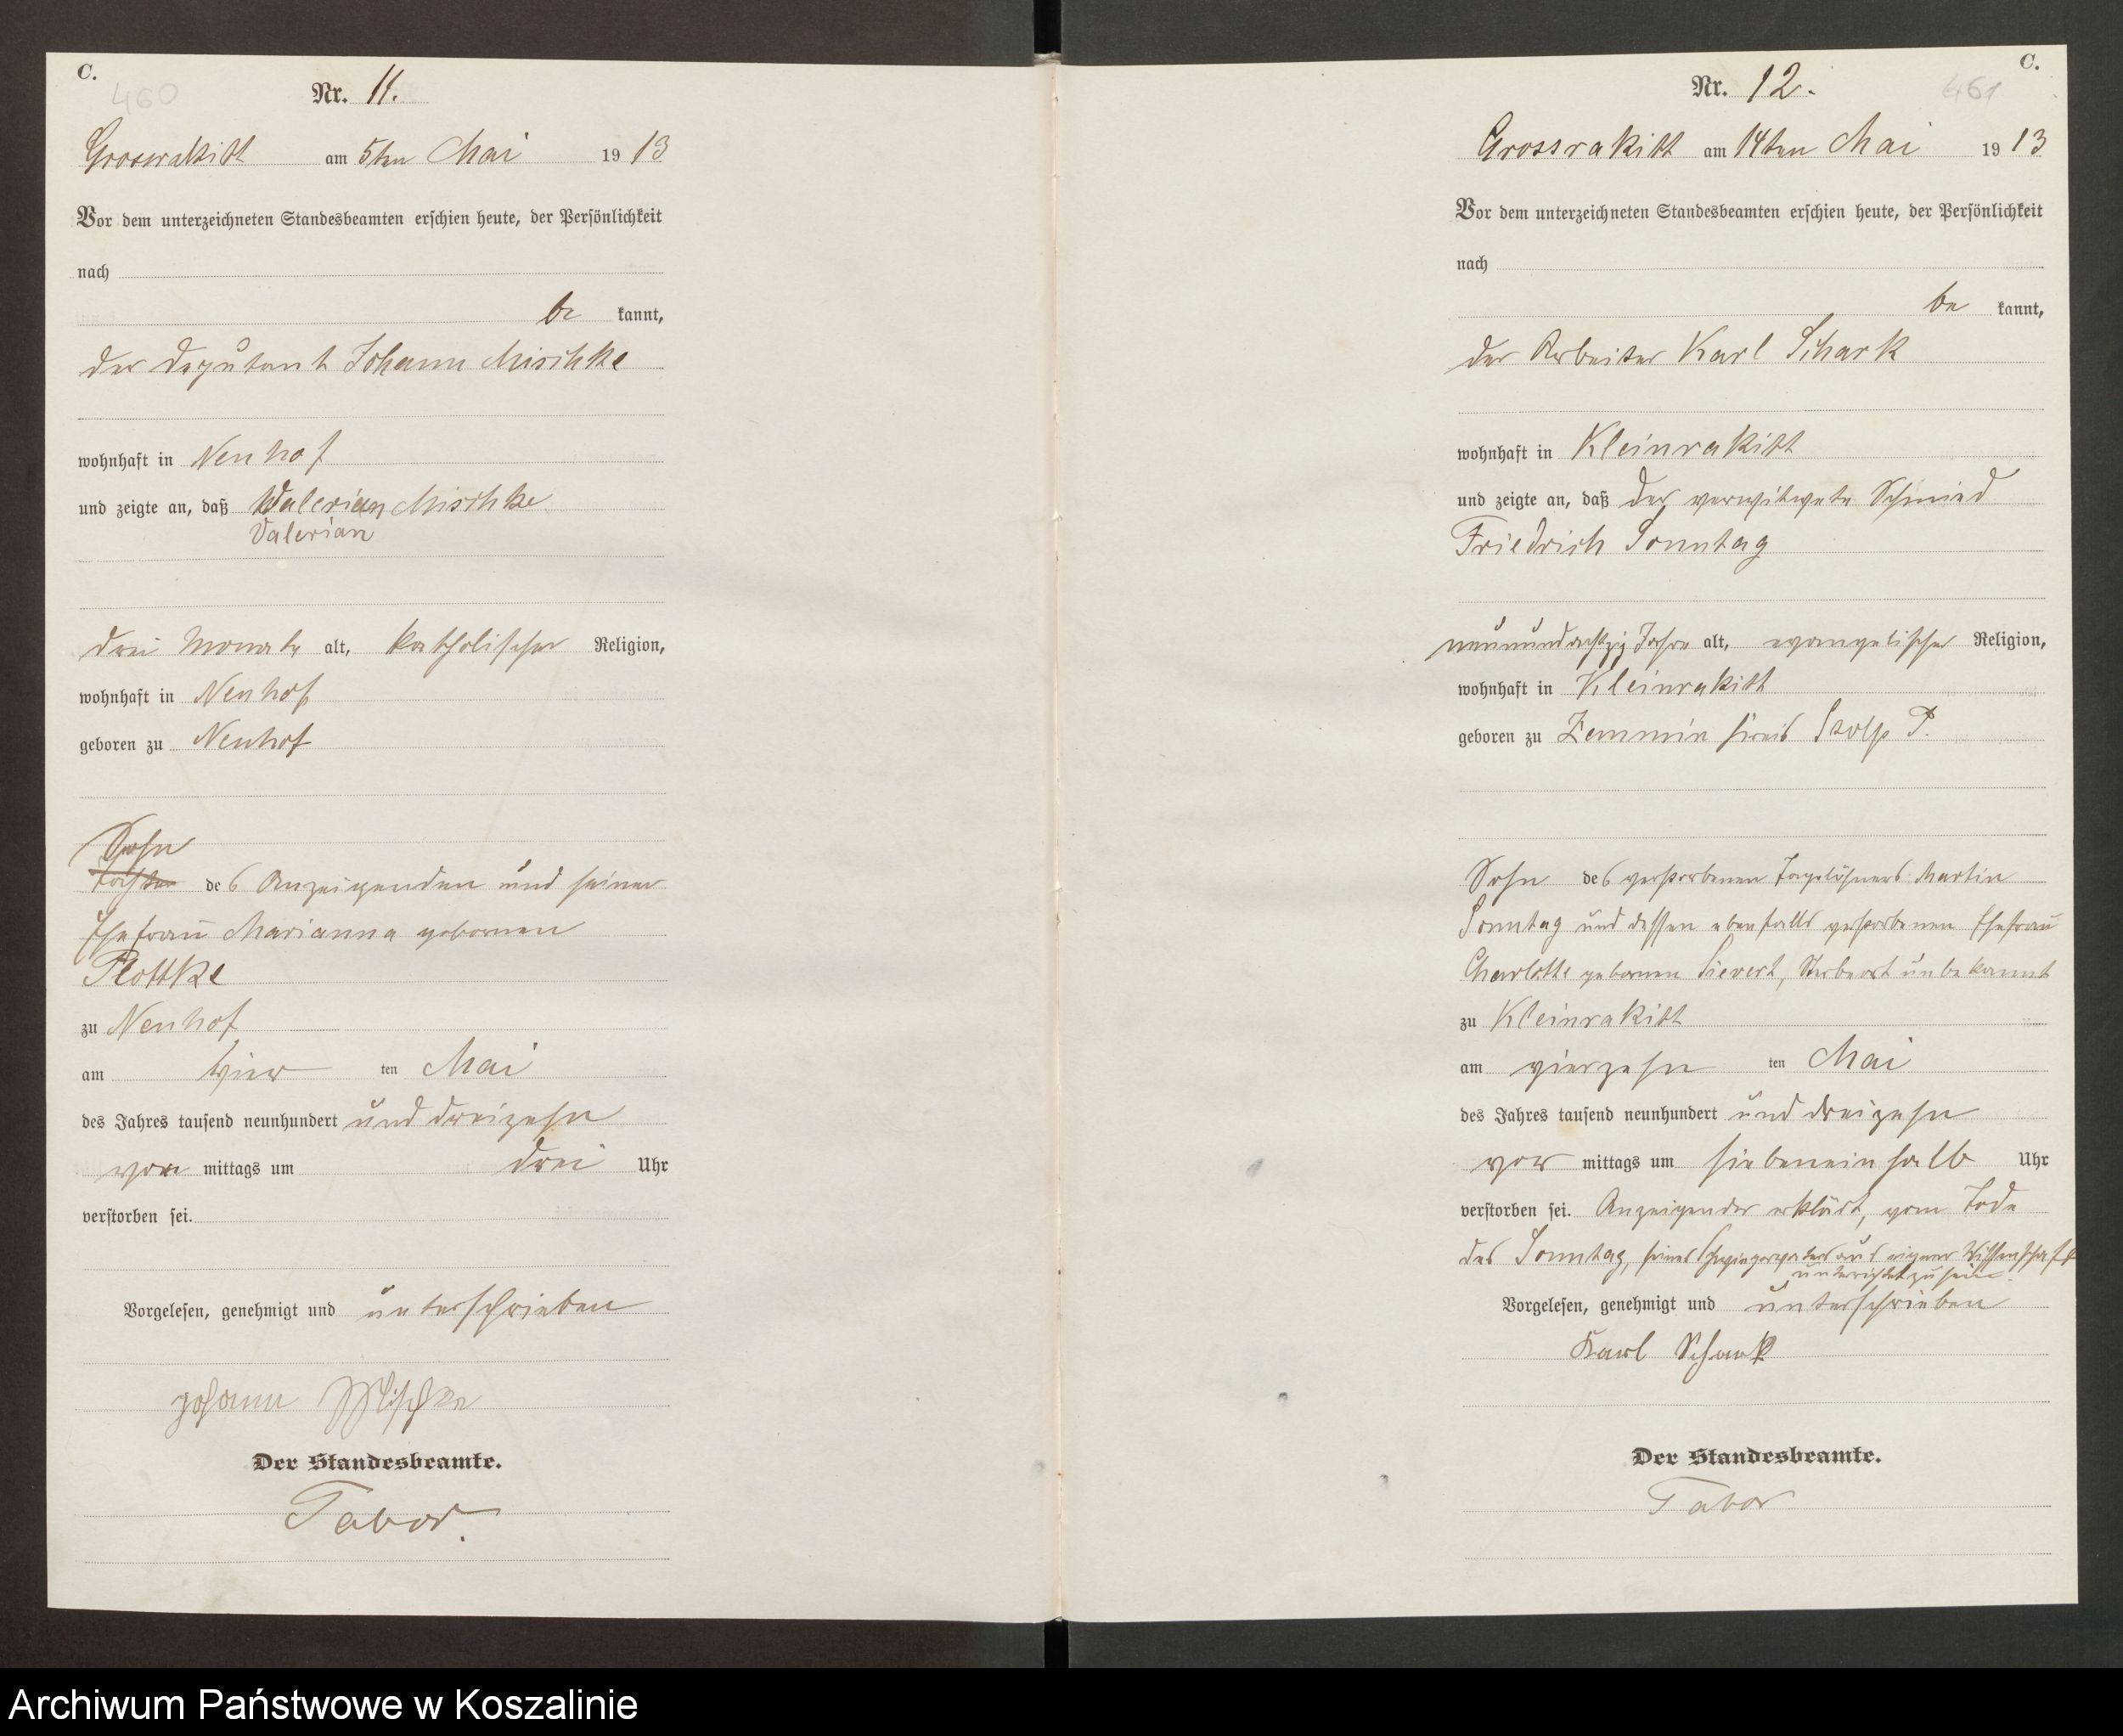 C.
460
Nr. 11.
Grossrakitt am 5ten Mai 1913
Vor dem unterzeichneten Standesbeamten erschien heute, der Persönlichkeit
nach
be kannt,
der Deputant Johann Mischke
wohnhaft in Neuhof
und zeigte an, daß Walerian Mischke
Valerian
drei Monate alt, katholischer Religion,
wohnhaft in Neuhof
geboren zu Neuhof
Sohn
Tochter des Anzeigenden und seiner
Ehefrau Marianna geborenen
Plottke
zu Neuhof
am vier ten Mai
des Jahres tausend neunhundert und dreizehn
vor mittags um drei Uhr
verstorben sei.
Vorgelesen, genehmigt und unterschrieben
Johann Mischke
Der Standesbeamte.
Tabor.
C.
461
Nr. 12.
Grossrakitt am 14ten Mai 1913
Vor dem unterzeichneten Standesbeamten erschien heute, der Persönlichkeit
nach
be kannt,
der Arbeiter Karl Schark
wohnhaft in Kleinrakitt
und zeigte an, daß der verwitwete Schmied
Friedrich Sonntag
neunundachtzig Jahre alt, evangelischer Religion,
wohnhaft in Kleinrakitt
geboren zu Zemmin Kreis Stolp P.
Sohn des verstorbenen Tagelöhners Martin
Sonntag und dessen ebenfalls verstorbenen Ehefrau
Charlotte geborenen Sievert, Sterbeort unbekannt
zu Kleinrakitt
am vierzehn ten Mai
des Jahres tausend neunhundert und dreizehn
vor mittags um siebeneinhalb Uhr
verstorben sei. Anzeigender erklärt, vom Tode
des Sonntag, seines Schwiegervaters aus eigener Wissenschaft
unterrichtet zu sein.
Vorgelesen, genehmigt und unterschrieben
Karl Schark
Der Standesbeamte.
Tabor
Archiwum Państwowe w Koszalinie